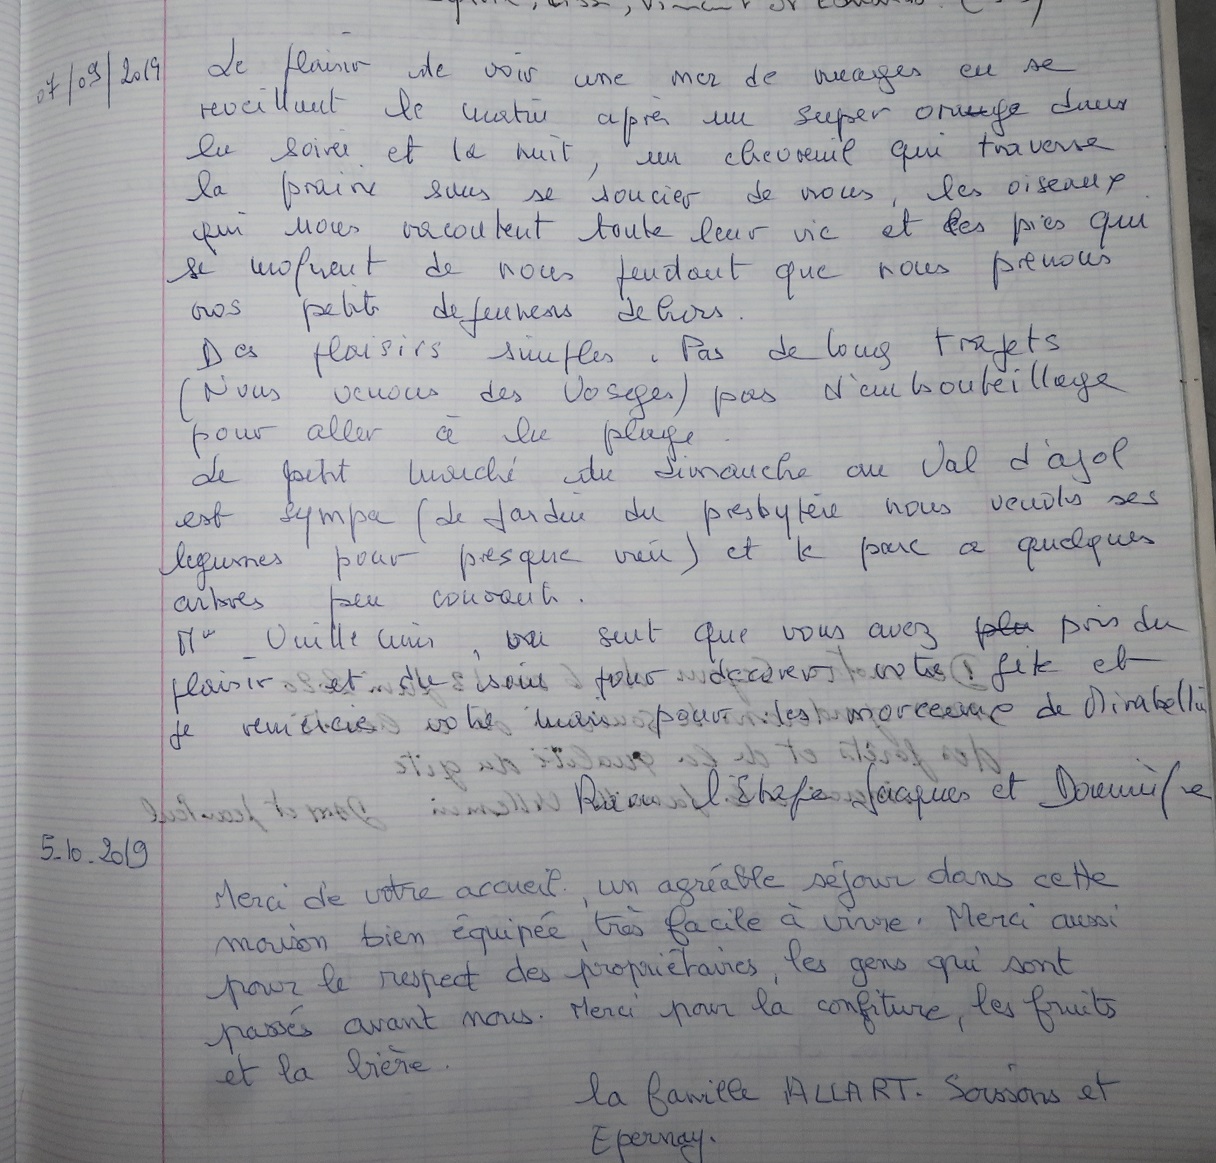 07/09/2019
Le plaisir de voir une mer de nuages en se
reveillant le matin après un super orange dans
la soirée et la nuit, un chevreuil qui traverse
la prairie sans se soucier de nous, les oiseaux
qui nous racontent toute leur vie et les pies qui
se moquent de nous pendant que nous prenons
nos petits dejeuners dehors.
Des plaisirs simples. Pas de long trajets
(Nous venons des Vosges) pas d'embouteillage
pour aller à la plage.
Le petit marché du dimanche au Val d'ajol
est sympa (Le Jardin du presbytère nous vendu ses
legumes pour presque rien) et le parc a quelques
arbres peu courants.
Mr Vuillemin, on sent que vous avez pris du
plaisir et du soin pour décorer votre gite et
je remercie votre pour les morceaux de
l'Etape Jacques et Dominique
5.10.2019
Merci de votre accueil, un agréable séjour dans cette
maison bien équipée, très facile à vivre. Merci aussi
pour le respect des propriétaires, les gens qui sont
passés avant nous. Merci pour la confiture, les fruits
et la bière.
la famille ALLART. Soissons et
Epernay.